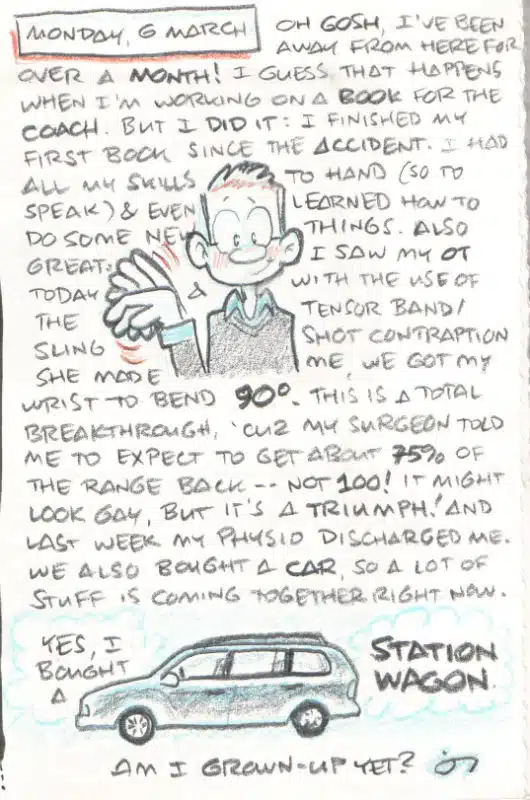 MONDAY, 6 MARCH
OH GOSH, I'VE BEEN
AWAY FROM HERE FOR
OVER A MONTH! I GUESS THAT HAPPENS
WHEN I'M WORKING ON A BOOK FOR THE
COACH. BUT I DID IT: I FINISHED MY
FIRST BOOK SINCE THE ACCIDENT. I HAD
ALL MY SKILLS TO HAND (SO TO
SPEAK) & EVEN LEARNED HOW TO
DO SOME NEW THINGS. ALSO
GREAT: I SAW MY OT
TODAY & WITH THE USE OF
THE TENSOR BAND/
SLING SHOT CONTRAPTION
SHE MADE ME, WE GOT MY
WRIST TO BEND 90°. THIS IS A TOTAL
BREAKTHROUGH, 'CUZ MY SURGEON TOLD
ME TO EXPECT TO GET ABOUT 75% OF
THE RANGE BACK -- NOT 100! IT MIGHT
LOOK GAY, BUT IT'S A TRIUMPH! AND
LAST WEEK MY PHYSIO DISCHARGED ME.
WE ALSO BOUGHT A CAR, SO A LOT OF
STUFF IS COMING TOGETHER RIGHT NOW.
YES, I
BOUGHT
A
STATION
WAGON.
AM I GROWN-UP YET?